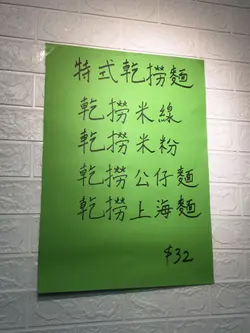 特式乾撈麵
乾撈米線
乾撈米粉
乾撈公仔麵
乾撈上海麵
$32